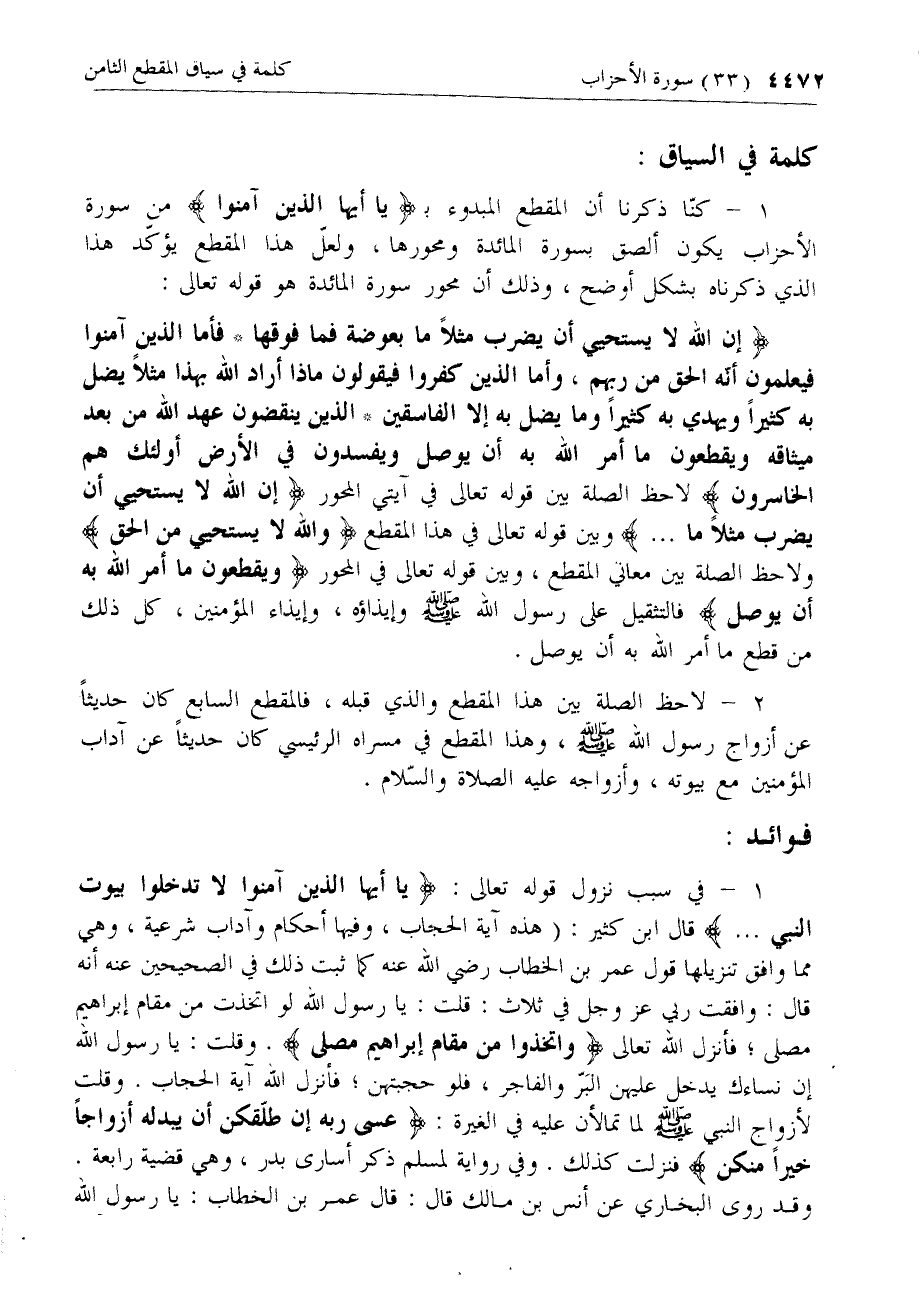 ٤٤٧٢ (٣٣) سورة الأحزاب كلمة في سياق المقطع الثامن
كلمة في السياق :
١ - كنّا ذكرنا أن المقطع المبدوء بـ ﴿ يا أيها الذين آمنوا ﴾ من سورة
الأحزاب يكون ألصق بسورة المائدة ومحورها ، ولعلّ هذا المقطع يؤكّد هذا
الذي ذكرناه بشكل أوضح ، وذلك أن محور سورة المائدة هو قوله تعالى :
﴿ إن الله لا يستحيي أن يضرب مثلاً ما بعوضة فما فوقها * فأما الذين آمنوا
فيعلمون أنّه الحق من ربهم ، وأما الذين كفروا فيقولون ماذا أراد الله بهذا مثلاً يضل
به كثيراً ويهدي به كثيراً وما يضل به إلا الفاسقين * الذين ينقضون عهد الله من بعد
ميثاقه ويقطعون ما أمر الله به أن يوصل ويفسدون في الأرض أولئك هم
الخاسرون ﴾ لاحظ الصلة بين قوله تعالى في آيتي المحور ﴿ إن الله لا يستحيي أن
يضرب مثلاً ما ... ﴾ وبين قوله تعالى في هذا المقطع ﴿ والله لا يستحيي من الحق ﴾
ولاحظ الصلة بين معاني المقطع ، وبين قوله تعالى في المحور ﴿ ويقطعون ما أمر الله به
أن يوصل ﴾ فالتثقيل على رسول الله ﷺ وإيذاؤه ، وإيذاء المؤمنين ، كل ذلك
من قطع ما أمر الله به أن يوصل .
٢ - لاحظ الصلة بين هذا المقطع والذي قبله ، فالمقطع السابع كان حديثاً
عن أزواج رسول الله ﷺ ، وهذا المقطع في مسراه الرئيسي كان حديثاً عن آداب
المؤمنين مع بيوته ، وأزواجه عليه الصلاة والسّلام .
فوائد :
١ - في سبب نزول قوله تعالى : ﴿ يا أيها الذين آمنوا لا تدخلوا بيوت
النبي ... ﴾ قال ابن كثير : ( هذه آية الحجاب ، وفيها أحكام وآداب شرعية ، وهي
مما وافق تنزيلها قول عمر بن الخطاب رضي الله عنه كما ثبت ذلك في الصحيحين عنه أنه
قال : وافقت ربي عز وجل في ثلاث : قلت : يا رسول الله لو اتخذت من مقام إبراهيم
مصلى ؛ فأنزل الله تعالى ﴿ واتخذوا من مقام إبراهيم مصلى ﴾ . وقلت : يا رسول الله
إن نساءك يدخل عليهن البَرّ والفاجر ، فلو حجبتهن ؛ فأنزل الله آية الحجاب . وقلت
لأزواج النبي ﷺ لما تمالأن عليه في الغيرة : ﴿ عسى ربه إن طلّقكن أن يبدله أزواجاً
خيراً منكن ﴾ فنزلت كذلك . وفي رواية لمسلم ذكر أسارى بدر ، وهي قضية رابعة .
وقد روى البخاري عن أنس بن مالك قال : قال عمر بن الخطاب : يا رسول الله